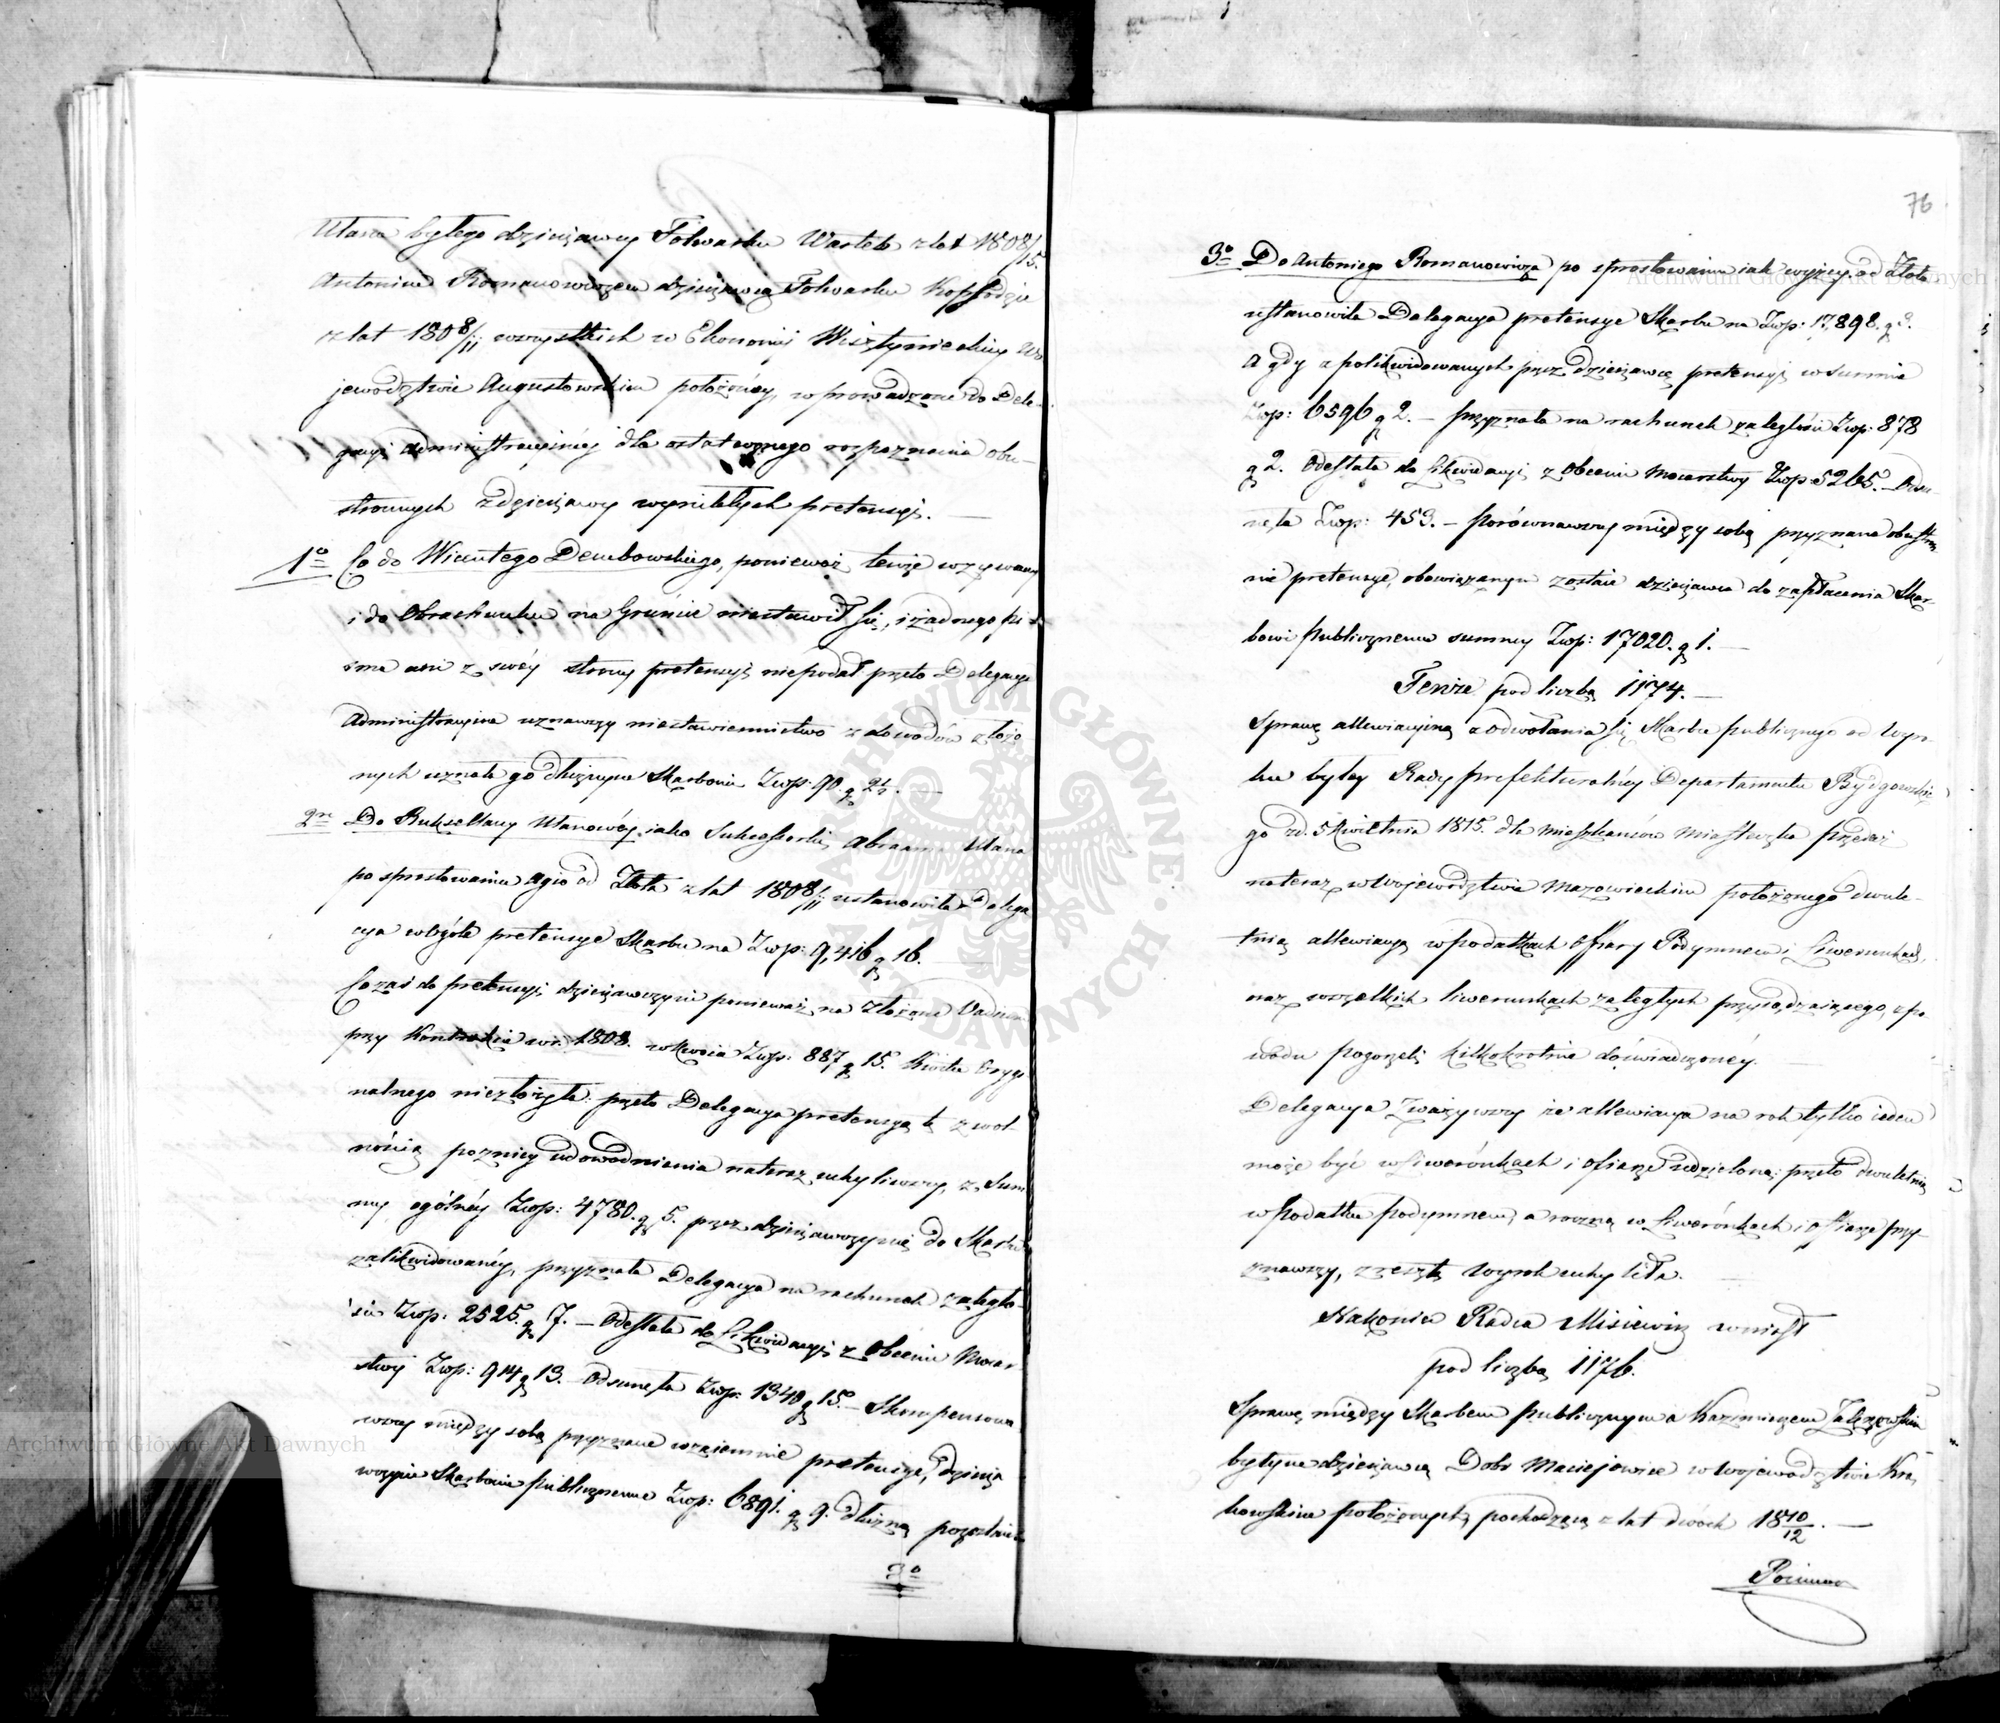 Utana byłego dzierżawcy Folwarku Wartele z lat 1808/15.
Antonim Romanowiczem dzierżawcą Folwarku Kopsodzie
z lat 1808/11 wszystkich w Ekonomii Wisztynieckiey Wo
jewództwie Augustowskim położoney, wprowadzone do Dele-
gacyi Administracyinéy dla ostatecznego rozpoznania obu-
stronnych z dzierżawy wynikłych pretensyi. —
1o Co do Wincentego Dembowskiego, ponieważ tenże wzywany
i do Obrachunku na Gruncie niestawił się, i żadnego pi-
sma ani z swéy strony pretensyi niepodał przeto Delegacya
Administracyina uznawszy niestawiennictwo z dowodów złożo
nych uznała go dłużnym Skarbowi Zwp: 90. g 2½. —
2do Do Rukseltany Utanowéy jako Sukcessorki Abrama Utana
po sprostowaniu agio od Złota z lat 1808/11 ustanowiła Delega
cya wogóle pretensye Skarbu na Zwp: 9,416 g 16. —
Co zaś do pretensyi dzierżawczyni ponieważ na złożone Vadium
przy Kontrakcie w r. 1808. w kwocie Zwp: 887 g 15. Kwitu Orygi
nalnego niezłożyła: przeto Delegacya pretensyą tę z wol-
nością pozniey udowodnienia nateraz uchyliwszy, z Sum
my ogólnéy Zwp: 4780. g 5. przez dzierżawczynię do Skarbu
zalikwidowanéy, przyznała Delegacya na rachunek zaległo-
ści Zwp: 2525. g 7. — Odesłała do Likwidacyi z Obcemi Mocar-
stwy Zwp: 914 g 13. — Odsunęła Zwp: 1340 g 15. — Skompensowa
wszy między sobą przyznane wzajemnie pretensye, dzierża
wczynię Skarbowi Publicznemu Zwp: 6891. g 9. dłużną pozostaie
3o
76
3o Do Antoniego Romanowicza po sprostowaniu iak wyżey od Złota
ustanowiła Delegacya pretensye Skarbu na Zwp: 17,898. g 3.
A gdy z polikwidowanych przez dzierżawcę pretensyi w summie
Zwp: 6596 g 2. — przyznała na rachunek zaległości Zwp: 878
g 2. Odesłała do Likwidacyi z Obcemi Mocarstwy Zwp: 5265. — Odsu-
nęła Zwp: 453. — porównawszy między sobą przyznane obustron
nie pretensye, obowiązanym zostaie dzierżawca do zapłacenia Skar-
bowi Publicznemu summy Zwp: 17020. g 1. —
Tenże pod liczbą 1174. —
Sprawę allewiacyiną z odwołania się Skarbu publicznego od Wyro-
ku byłey Rady prefekturalnéy Departamentu Bydgowskie
go z d. 5 kwietnia 1815. dla mieszkańców Miasteczka
nateraz w Województwie Mazowieckim położonego dwule-
tnią allewiacyą w podatkach Offiary Podymnem i Liwerunkach,
oraz wszelkich liwerunkach zaległych przysądzaiącego, z po-
wodu pogorzeli kilkokrotnie doświadczonéy. —
Delegacya Zważywszy że allewiacya na rok tylko ieden
może być w Liwerónkach i ofiarze udzieloną: przeto dwuletnią
w Podatku podymnem, a roczną w Liwerónkach i offiarze przy-
znawszy, zresztą Wyrok uchyliła. —
Nakoniec Radca Misiewicz wniosł
pod liczbą 1176.
Sprawę między Skarbem publicznym a Kazimierzem
byłym dzierżawcą Dobr Maciejowice w Województwie Kra
kowskim położonych, pochodzącą z lat dwóch 1810/12. —
Archiwum Główne Akt Dawnych
Archiwum Główne Akt Dawnych
ARCHIWUM GŁÓWNE AKT DAWNYCH